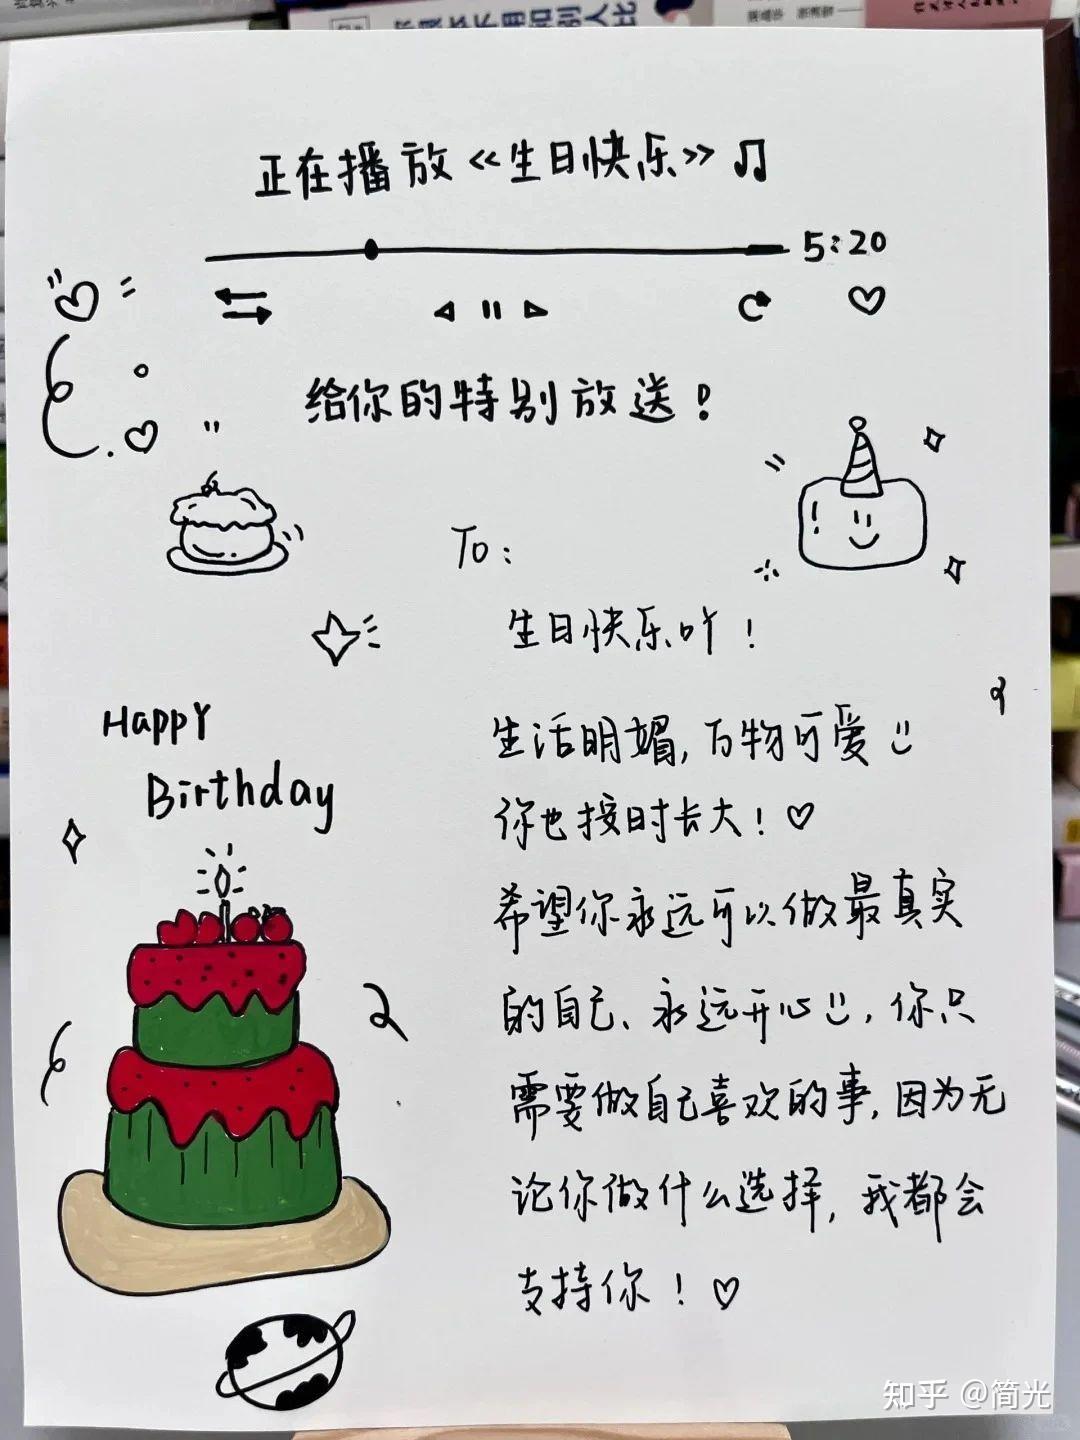 正在播放《生日快乐》♫
5:20
给你的特别放送！
To：
生日快乐吖！
Happy
Birthday
生活明媚，万物可爱
你也按时长大！♡
希望你永远可以做最真实
的自己、永远开心，你只
需要做自己喜欢的事，因为无
论你做什么选择，我都会
支持你！♡
知乎 @简光